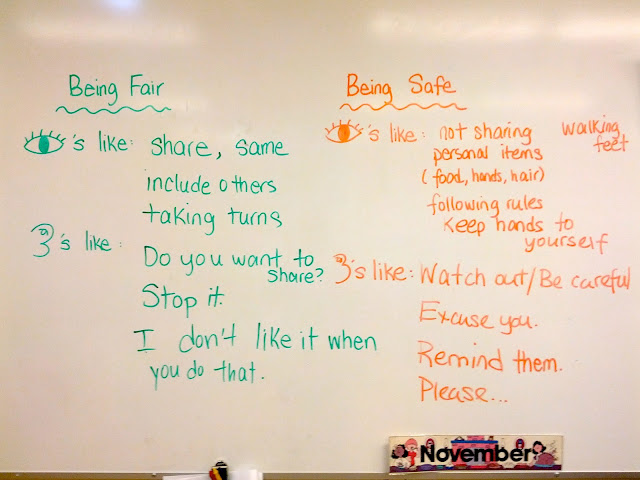 Being Fair
's like: share, same
include others
taking turns
's like:
Do you want to
share?
Stop it.
I don't like it when
you do that.
Being Safe
's like: not sharing
personal items
(food, hands, hair)
walking
feet
following rules
Keep hands to
yourself
's like: Watch out/Be careful
Excuse you.
Remind them.
Please...
November